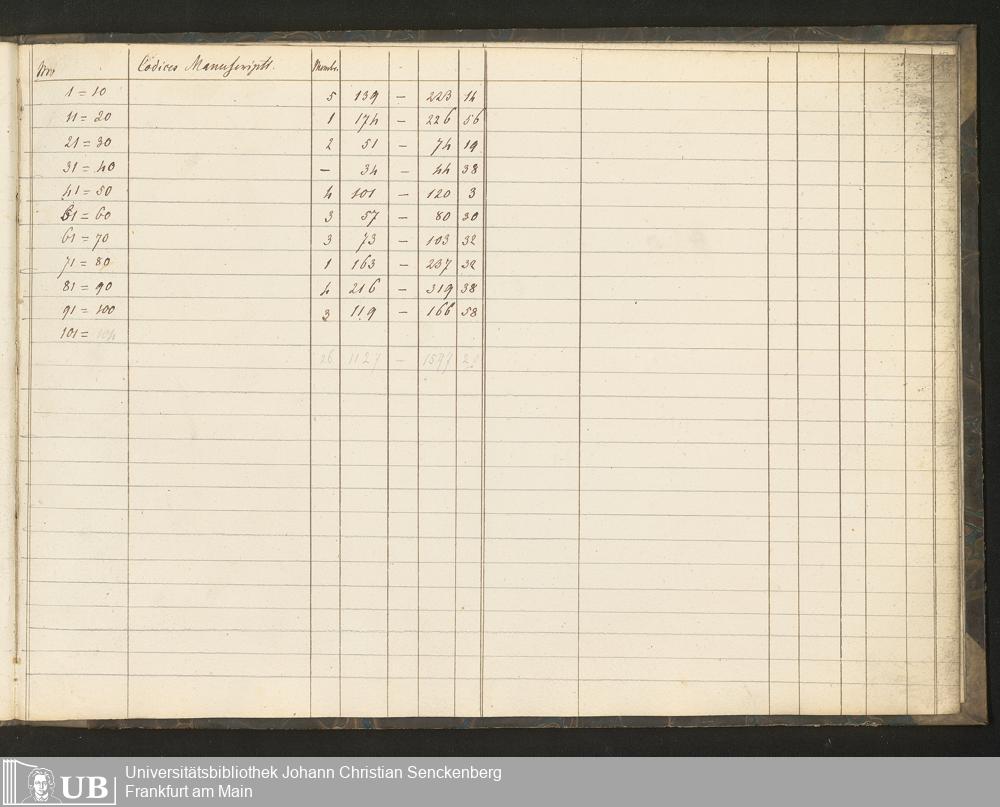 Nro Codices Manuscripti. Membr.
1 = 10 5 139 — 223 14
11 = 20 1 174 — 226 56
21 = 30 2 51 — 74 19
31 = 40 — 34 — 44 38
41 = 50 4 101 — 120 3
51 = 60 3 57 — 80 30
61 = 70 3 73 — 103 32
71 = 80 1 163 — 237 32
81 = 90 4 216 — 319 38
91 = 100 3 119 — 166 58
101 = 104
26 1127 —
Universitätsbibliothek Johann Christian Senckenberg
Frankfurt am Main
UB